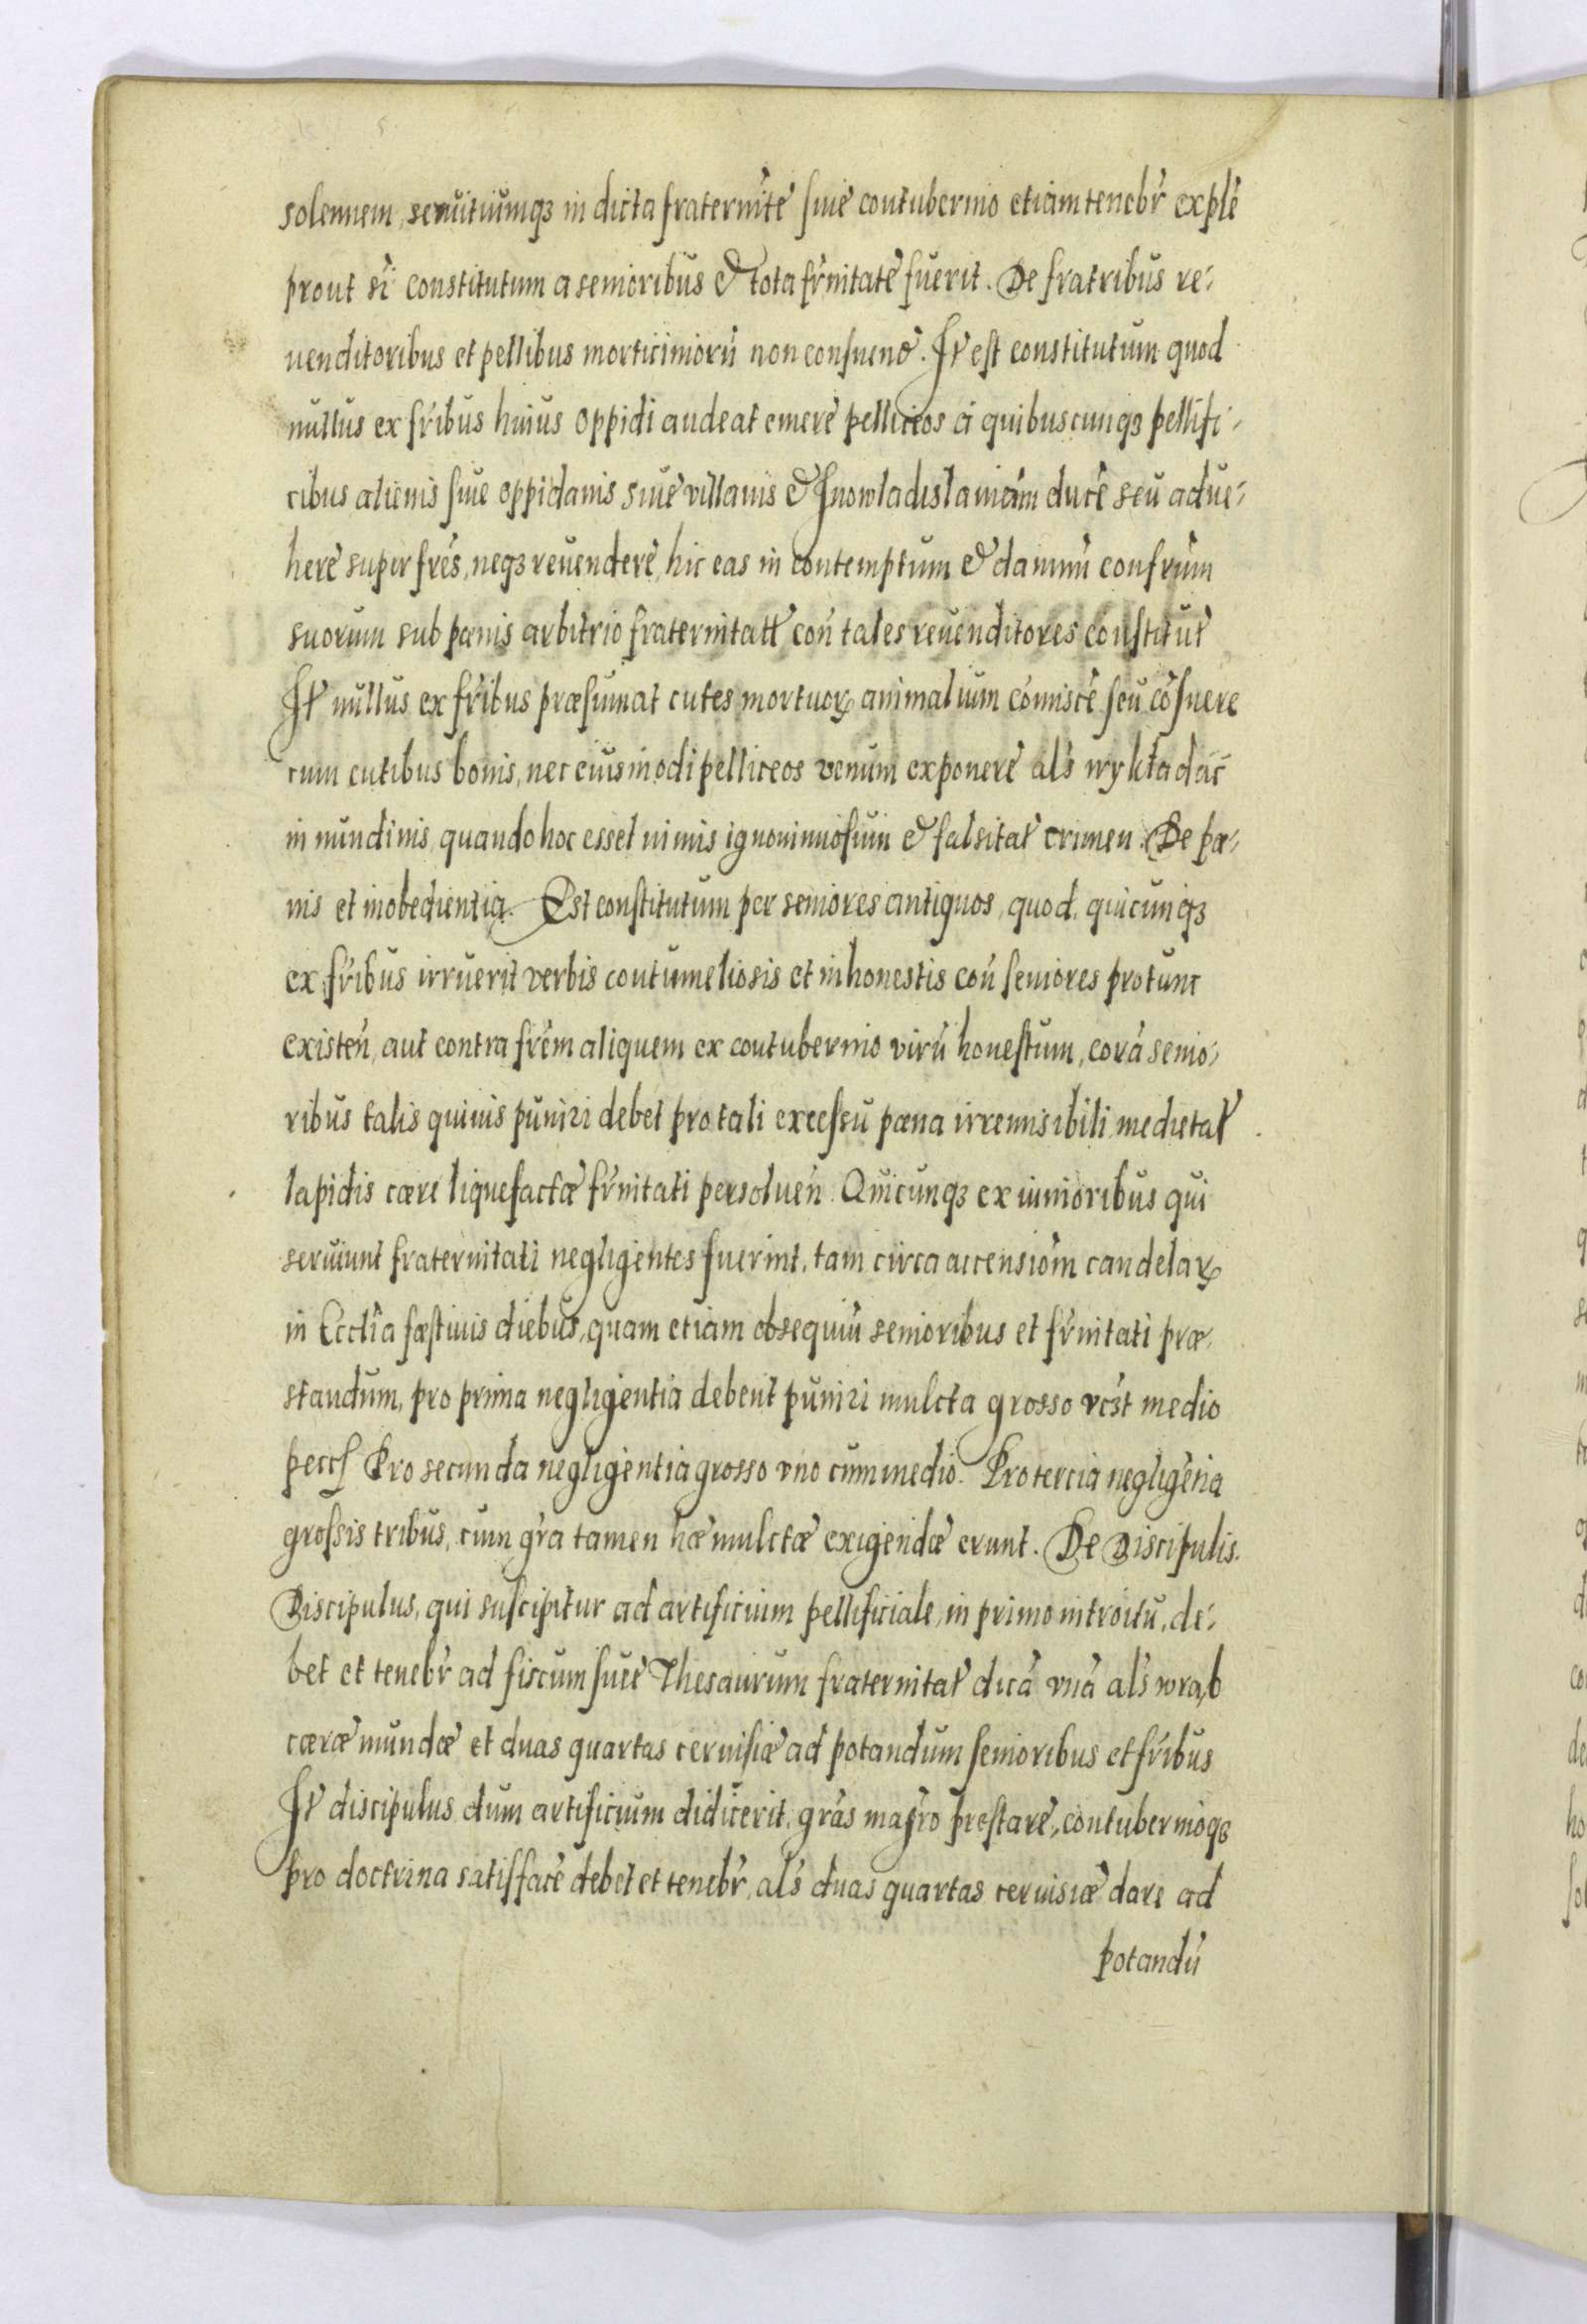 solennem, seruitiumqȝ in dicta fraternite͂ siue contubernio etiam tenebr̃ exple͂
prout si͂ constitutum a senioribus & tota fr̃nitate fuerit. De fratribus re⸗
uenditoribus et pellibus morticinioru͂ non consuen͂. It͂ est constitutum quod
nullus ex fr̃ibus huius oppidi audeat emere pelliceos a quibuscunqȝ pellifi⸗
cibus alienis siue oppidanis siue villanis & Jnowladislauiam duce͂ seu adue⸗
here super fr̃es, neqȝ reuendere, hic eas in contemptum & damnu͂ confr̃um
suorum sub pœnis arbitrio fraternitat͂ con͂ tales reuenditores constitut͂
It͂ nullus ex fr̃ibus præsumat cutes mortuoꝝ animalium com͂isce͂ seu co͂suere
cum cutibus bonis, nec eiusmodi pelliceos venum exponere al͂s wykładać
in nundinis, quando hoc esset nimis ignominiosum & falsitat͂ crimen. De pœ⸗
nis et inobedientia. Est constitutum per seniores antiquos, quod, quicunqȝ
ex fr̃ibus irruerit verbis contumeliosis et inhonestis con͂ seniores pro tunc
existen͂, aut contra fr̃em aliquem ex contubernio viru͂ honestum, cora͂ senio⸗
ribus talis quiuis puniri debet pro tali excessu pœna irremisibili medietat͂
lapidis cære liquefactæ fr̃nitati persoluen͂. Quicunqȝ ex iunioribus qui
seruiunt fraternitati negligentes fuerint, tam circa accensiom͂ candelaꝝ
in Eccl͂ia fæstiuis diebus, quam etiam obsequiu͂ senioribus et fr̃nitati præ⸗
standum, pro prima negligentia debent puniri mulcta grosso vs͂t medio
pecc͂ Pro secunda negligentia grosso vno cum medio. Pro tercia neglige͂tia
grossis tribus, cum gr̃a tamen hæ mulctæ exigendæ erunt. De Discipulis.
Discipulus, qui suscipitur ad artificium pellificiale, in primo introitu, de⸗
bet et tenebr̃ ad fiscum siue Thesaurum fraternitat͂ dica͂ vna͂ al͂s wrąb
cæræ mundæ et duas quartas ceruisiæ ad potandum senioribus et fr̃ibus
It͂ discipulus dum artificium didicerit, gr̃as mag͂ro prestare, contubernioqȝ
pro doctrina satisface͂ debet et tenebr̃, al͂s duas quartas ceruisiæ dare ad
potandu͂